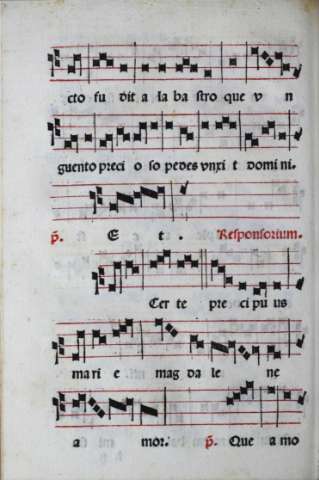 cto fu dit a la ba stro que v n
guento preci o so pedes vnxi t domini.
p̄. E t. Responsorium.
Cer te pre ci pu us
mari e mag da le ne
a mor. p̄. Que a mo